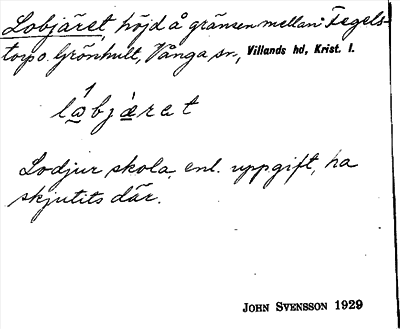 Lobjäret, höjd å gränsen mellan Fegels-
torp o. Grönhult, Vånga sn, Villands hd, Krist. l.
l a b j æ̀ r e t
Lodjur skola, enl. uppgift, ha
skjutits där.
JOHN SVENSSON 1929